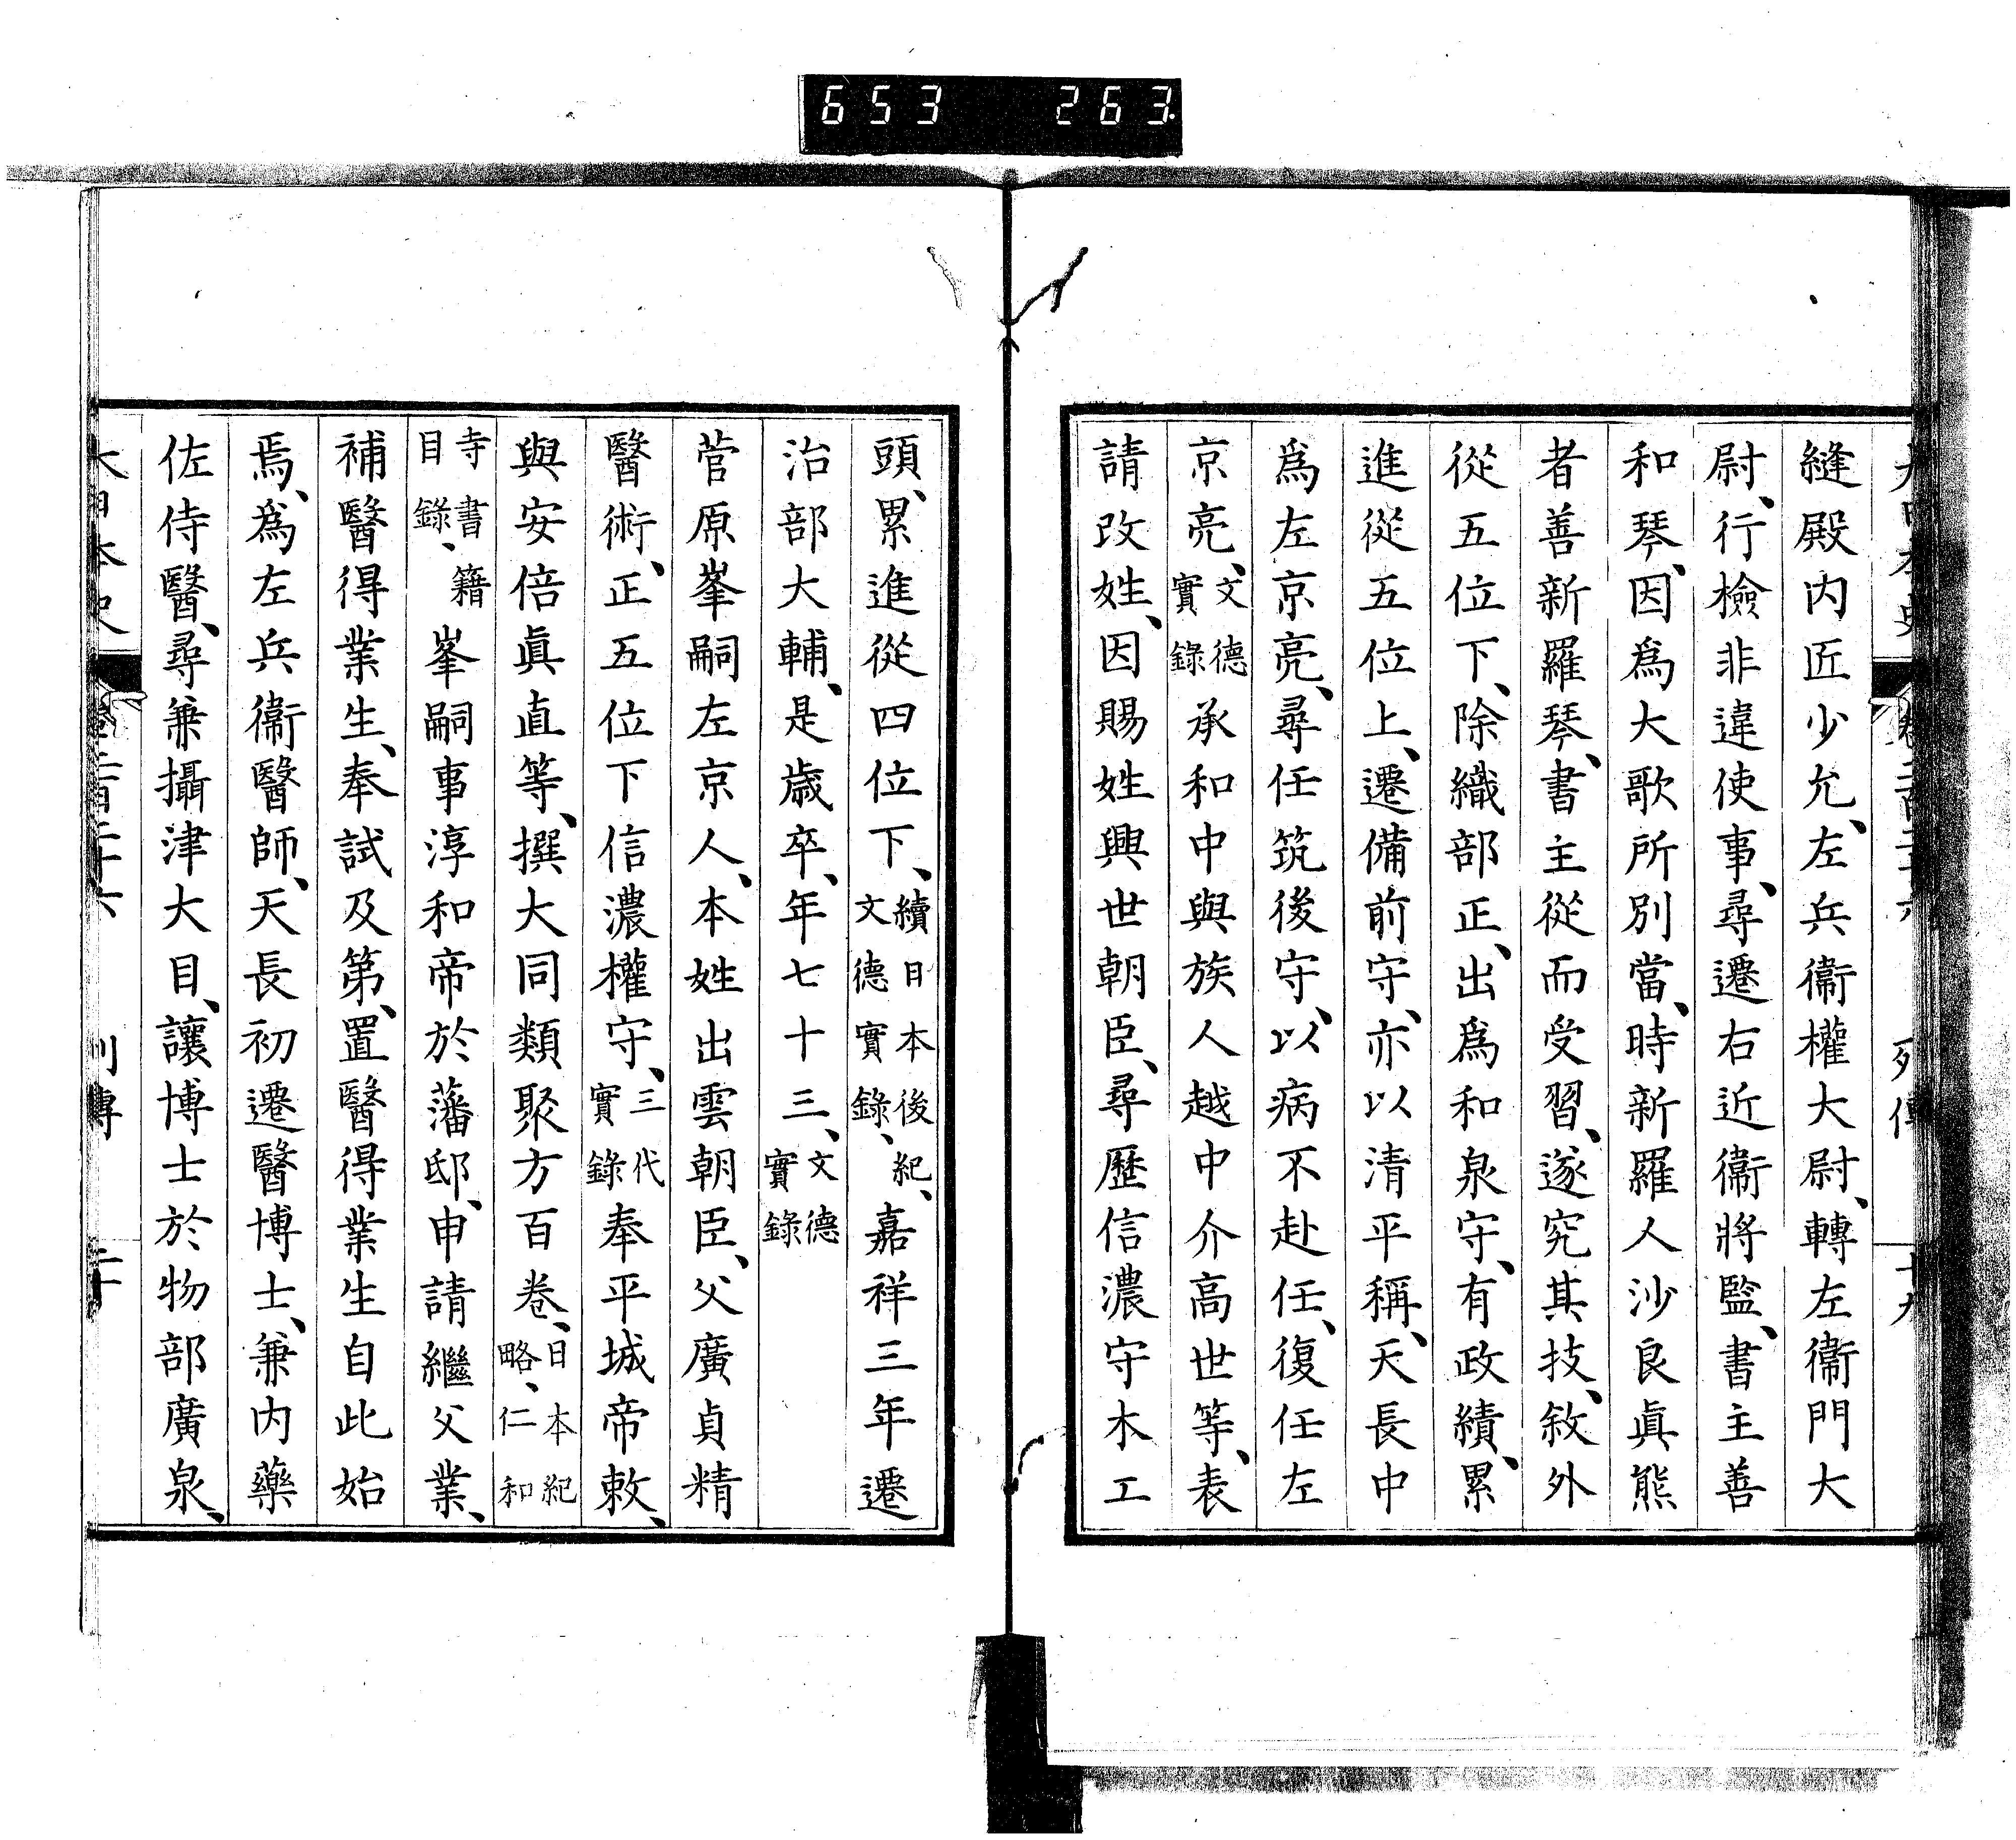 653 263
大日本史 卷二百二十六 列傳 十九
縫殿内匠少允、左兵衞權大尉、轉左衞門大
尉、行檢非違使事、尋遷右近衞將監、書主善
和琴、因爲大歌所別當、時新羅人沙良眞熊
者善新羅琴、書主從而受習、遂究其技、敘外
從五位下、除織部正、出爲和泉守、有政績、累
進從五位上、遷備前守、亦以清平稱、天長中
爲左京亮、尋任筑後守、以病不赴任、復任左
京亮、文德實錄承和中與族人越中介高世等、表
請改姓、因賜姓興世朝臣、尋歷信濃守木工
頭、累進從四位下、續日本後紀、文德實錄、嘉祥三年遷
治部大輔、是歲卒、年七十三、文德實錄
菅原峯嗣左京人、本姓出雲朝臣、父廣貞精
醫術、正五位下信濃權守、三代實錄奉平城帝敕、
與安倍眞直等、撰大同類聚方百卷、日本紀略、仁和
寺書籍目錄、峯嗣事淳和帝於藩邸、申請繼父業、
補醫得業生、奉試及第、置醫得業生自此始
焉、爲左兵衞醫師、天長初遷醫博士、兼内藥
佐侍醫、尋兼攝津大目、讓博士於物部廣泉、
大日本史 卷二百二十六 列傳 二十